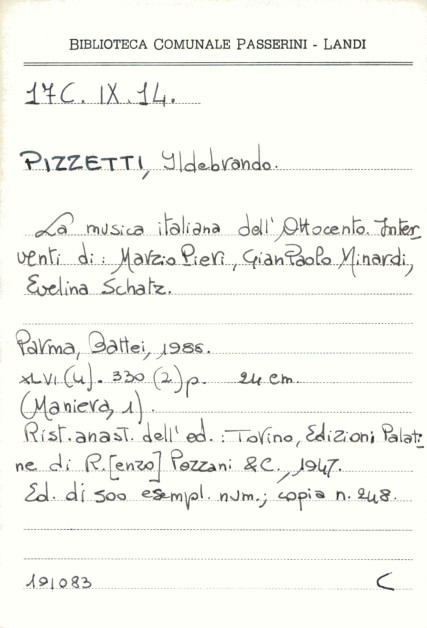 BIBLIOTECA COMUNALE PASSERINI - LANDI
17C. IX. 14.
PIZZETTI, Ildebrando.
La musica italiana dell'Ottocento. Inter_
venti di: Marzio Pieri, GianPaolo Minardi,
Evelina Schatz.
Parma, Battei, 1986.
XLVI (4). 330 (2) p. 24 cm.
(Maniera, 1).
Rist. anast. dell'ed.: Torino, Edizioni Palati_
ne di R.[enzo] Pezzani & C., 1947.
Ed. di 500 esempl. num.; copia n. 248.
191083 C